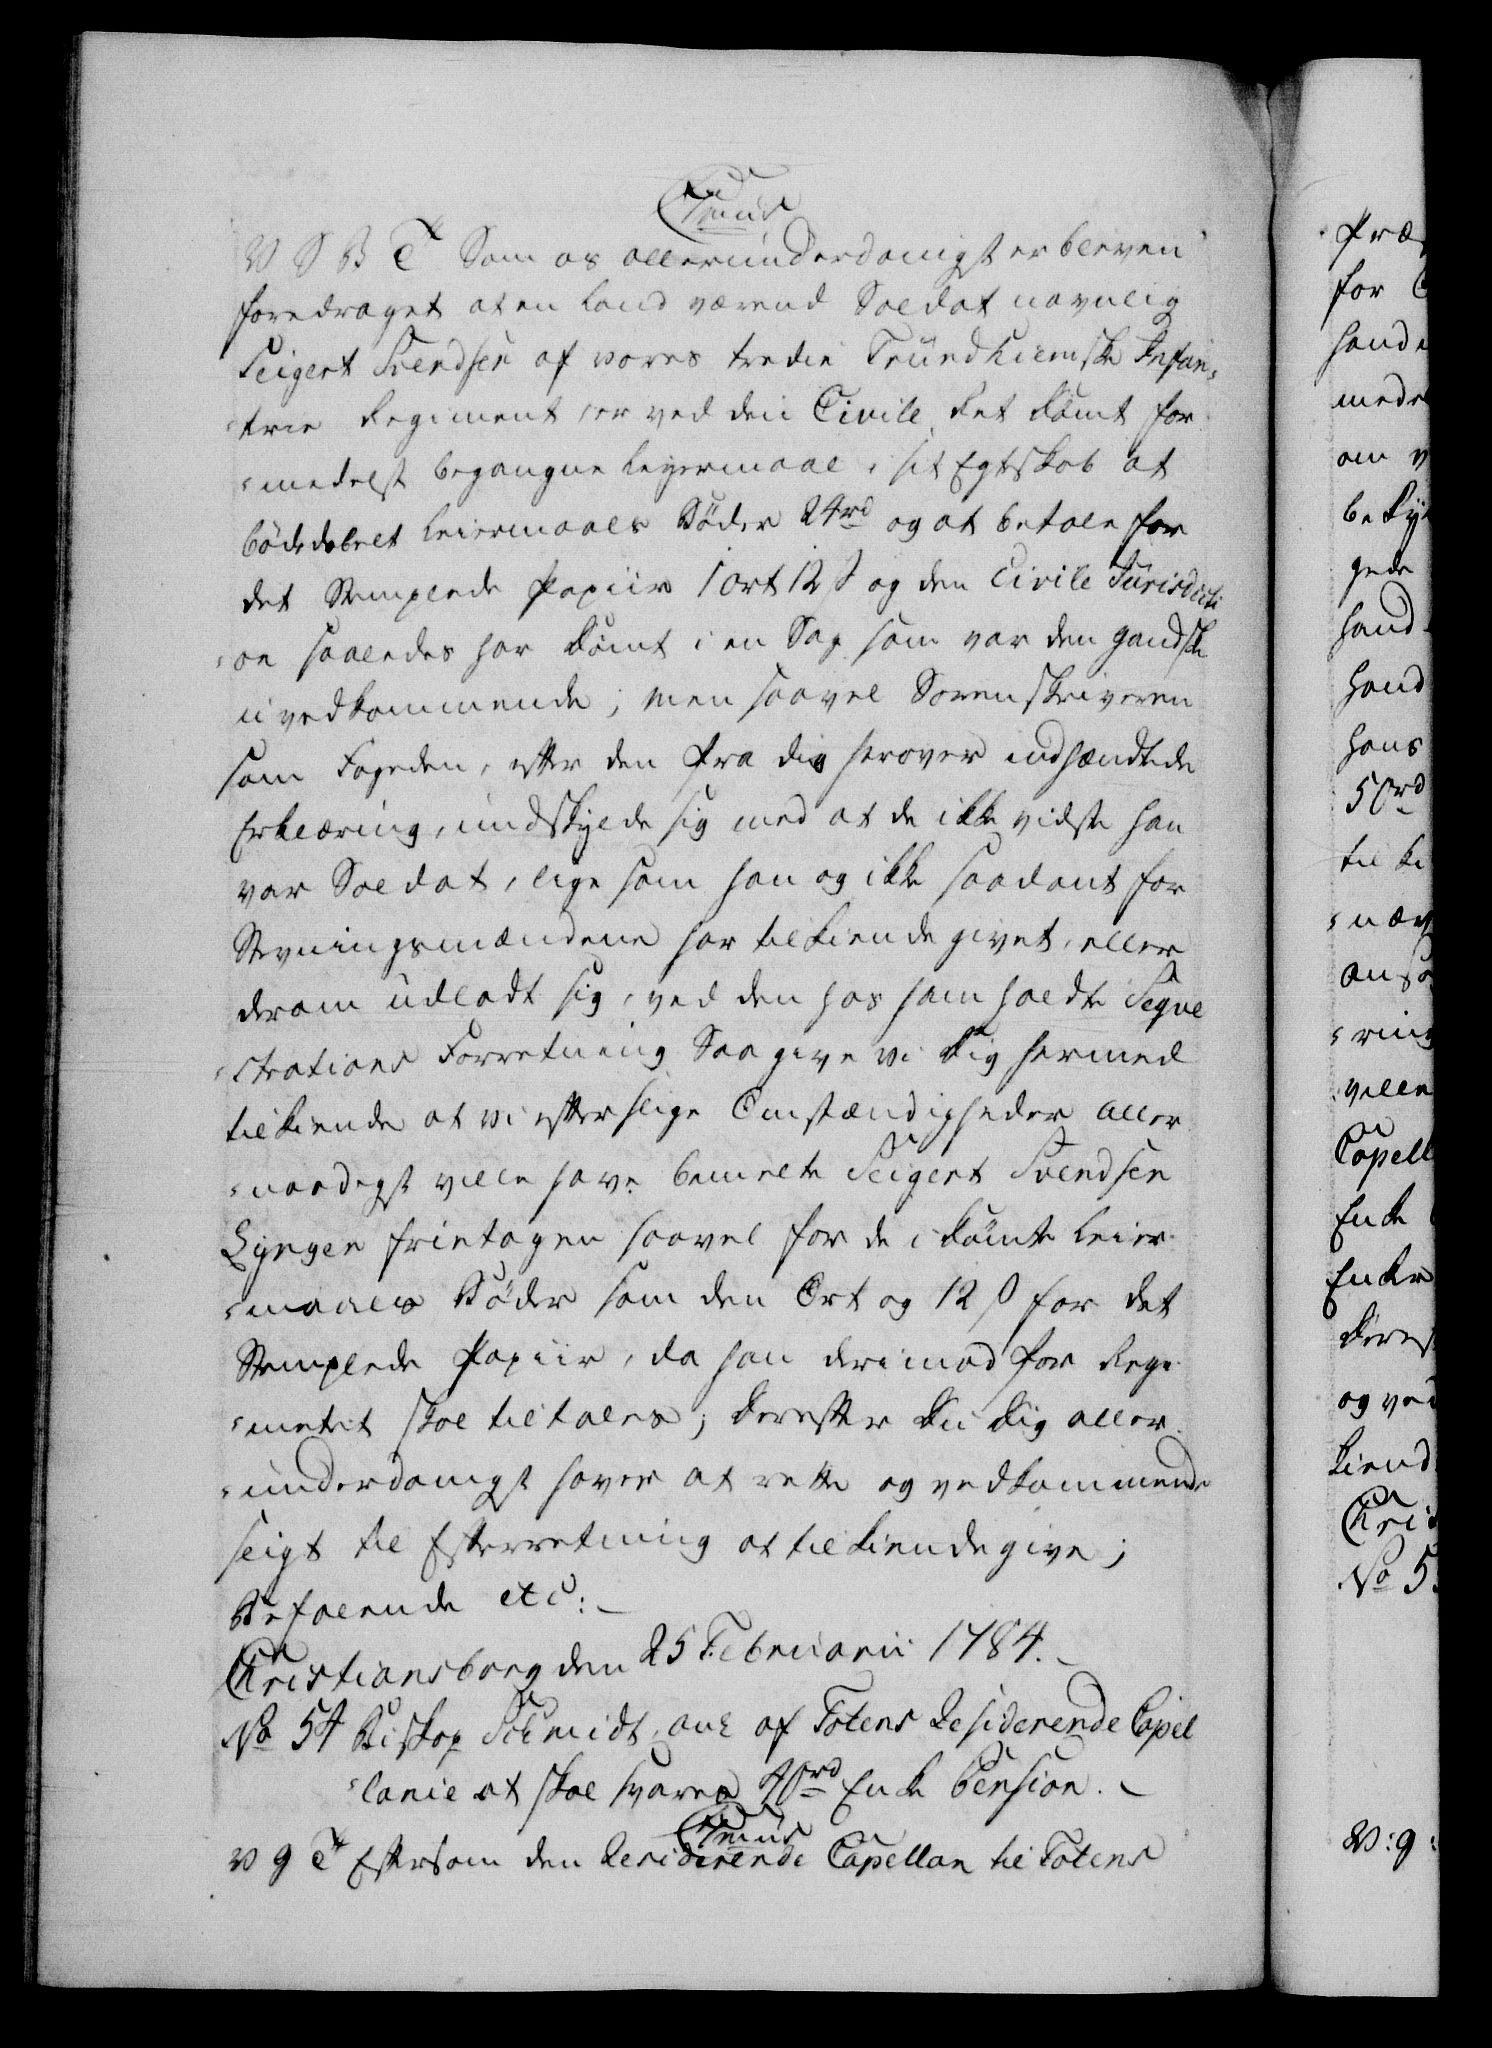 V S B T Som os allerunderdanigst er bleven
foredraget at en land værend Soldat navnlig
Seigert Svendsen af vores tredie Trundhiemske Infan¬
¬trie Regiment, er ved den Civile Ret dømt for
¬medelst begangne Leyermaal i sit Egteskab at
bøde dobelt Leiermaals Bøder 24 rd og at betale for
det Stemplede Papiir 1 ort 12 s og den Civile Jurisdicti
¬on saaledes har dømt i en Sag som var den gandske
uvedkommende; men saavel Sorenskriveren
som Fogeden, efter den fra dig herover indhændtede
Erklæring, undskylde sig med at de ikke vidste han
var Soldat, lige som han og ikke saadant for
Stevningsmændene har tilkiende givet, eller
derom udladt sig, ved den hos ham holdte Seqve
¬strations Forretning Saa give vi dig hermed
tilkiende at vi efter slige Omstændigheder aller
¬naadigst ville have bemelte Seigert Svendsen
Lyngen fritagen saavel for de idømte Leier¬
¬maals Bøder som den Ort og 12 s for det
Stemplede Papiir, da han derimod for Regi
¬metet skal tiltales; derefter du dig aller¬
¬underdanigst haver at rette og vedkommende
seigt til Efterretning at tilkiende give;
Befalende etc:
Christiansborg den 25 Februarii 1784.
No 54 Biskop Schmidt, anl af Totens Residerende Capel
¬lanie at skal svares Enke Pension.
V g T Eftersom den Residerende Capellan til Totens